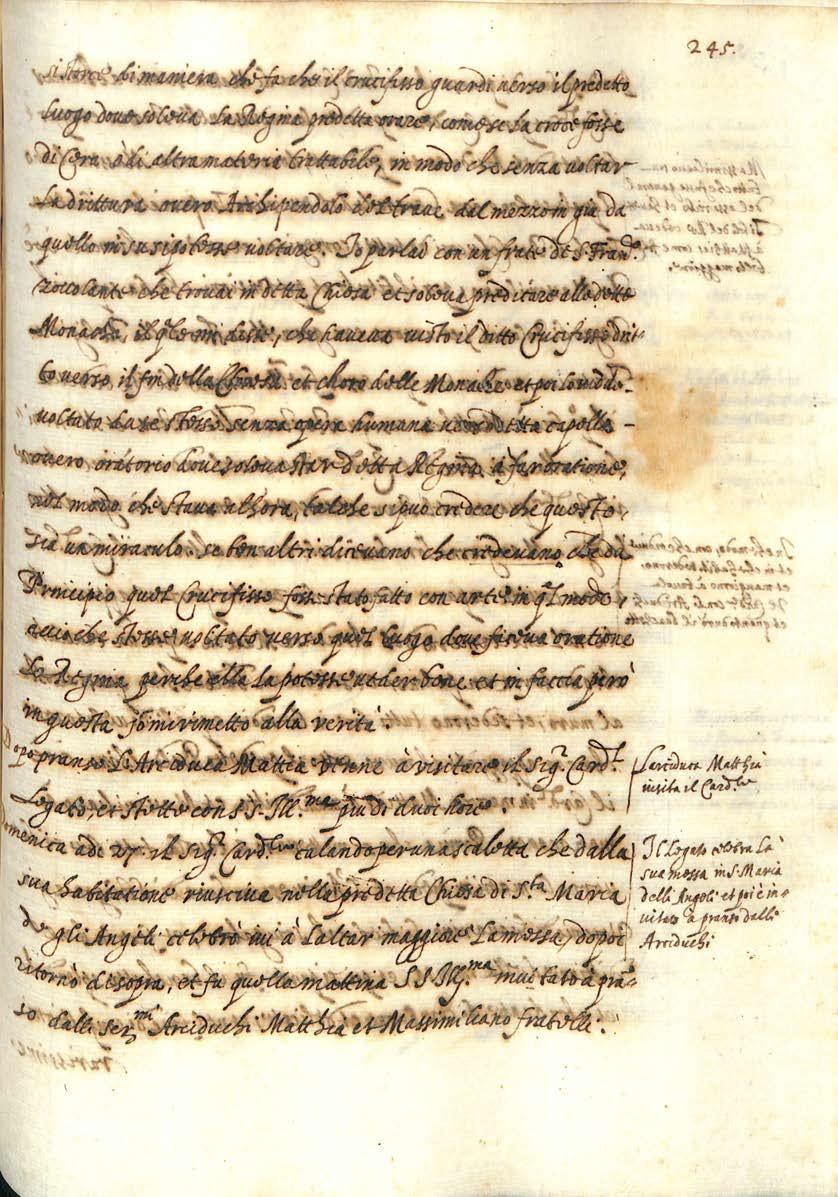 245.
si storce di maniera che fa che il crucifisso guardi verso il predetto
luogo dove soleva la Regina predetta orare, come se la croce fosse
di Cera o di altra materia trattabile, in modo che senza voltar
la drittura overo Archipendolo del trave dal mezzo in giu da
quello in su si potesse voltare. Io parlai con un frate de S. Fran.co
zoccolante che trovai in detta Chiesa et soleva predicare alle dette
Monache, il qle mi disse, che haveva visto il ditto Crucifisso drit-
to verso il fin della Chiesa et choro delle Monache et poi lo vidde
voltato da se stesso senza opera humana verso detta capella
overo oratorio dove soleva star detta Regina à far oratione,
nel modo che stava alhora, talche si puo credere che questo
sia un miraculo. se ben altri dicevano che credevano che da
Principio quel Crucifisso fosse stato fatto con arte in ql modo,
accio che stesse voltato verso quel luogo dove faceva oratione
la Regina perche ella la potesse veder bene et in faccia però
in questa io mi rimetto alla verità.
Dopo pranso L'Arciduca Mattia venne à visitare il Sigr. Card.l
Legato, et stette con S.S. Ill.ma piu di duoi hore.
Larciduca Matthia
visita il Card.le
Domenica adi 27. il Sigr. Card.le calando per una scaletta che dalla
sua habitatione riusciva nella predetta Chiesa di S.ta Maria
de gli Angeli celebrò ivi à laltar maggiore la messa, dopoi
ritornò di sopra, et fu quella mattina S.S. Ill.ma invitato à pran-
so dalli Ser.mi Arciduchi Matthia et Massimiliano fratelli.
Il Legato celebra la
sua messa in S. Maria
delli Angeli et poi è in-
vitato a pranso dalli
Arciduchi